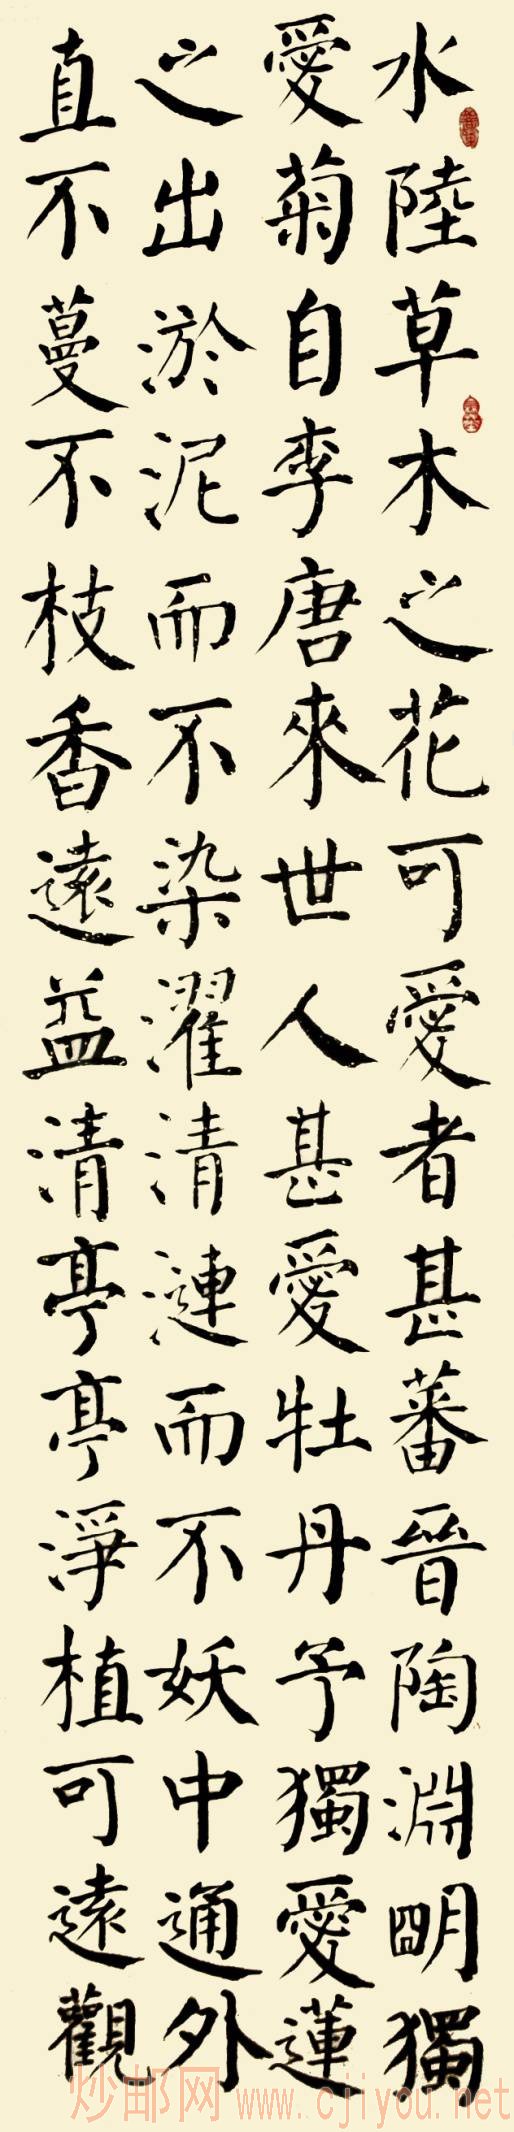 水陸草木之花可愛者甚蕃晉陶淵明獨
愛菊自李唐來世人甚愛牡丹予獨愛蓮
之出淤泥而不染濯清漣而不妖中通外
直不蔓不枝香遠益清亭亭淨植可遠觀
炒邮网www.cjiyou.net